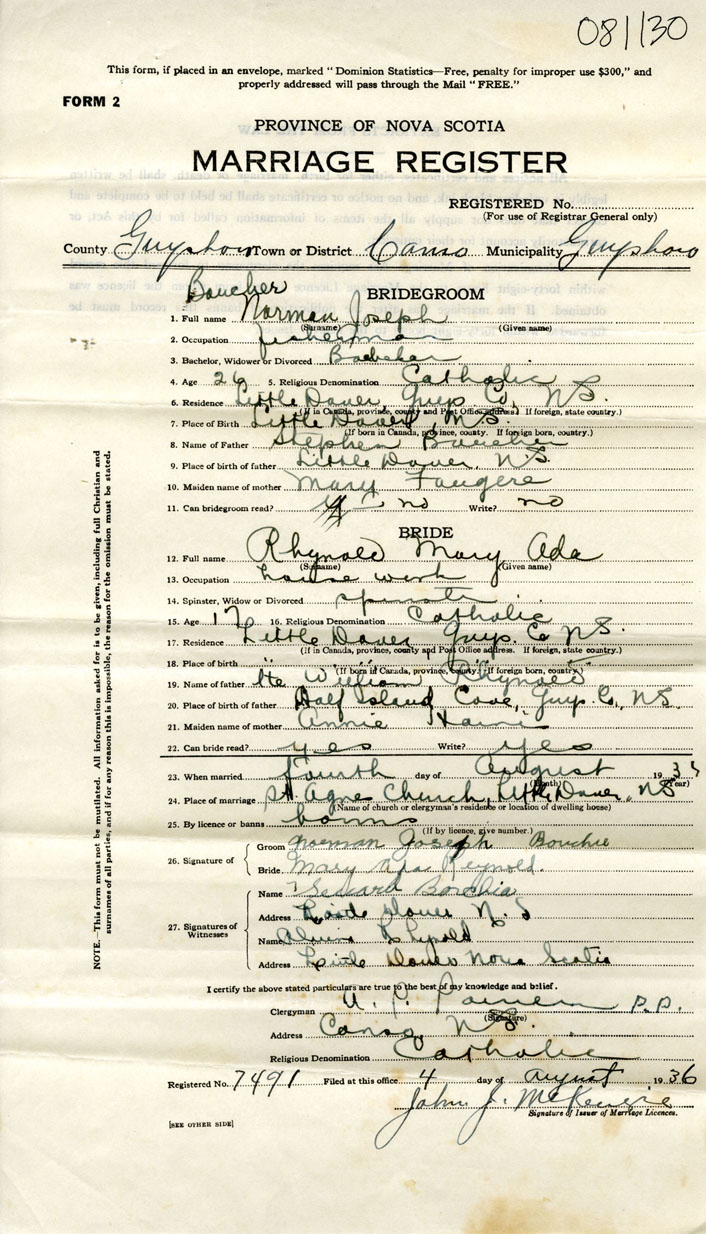 08130
This form, if placed in an envelope, marked "Dominion Statistics—Free, penalty for improper use $300," and
properly addressed will pass through the Mail "FREE."
FORM 2
PROVINCE OF NOVA SCOTIA
MARRIAGE REGISTER
REGISTERED No.
(For use of Registrar General only)
County Guysboro Town or District Canso Municipality Guysboro
Boucher
BRIDEGROOM
1. Full name Norman Joseph
(Surname) (Given name)
2. Occupation fisherman
3. Bachelor, Widower or Divorced Bachelor
4. Age 26 5. Religious Denomination Catholic
6. Residence Little Dover, Guys. Co, N.S.
(If in Canada, province, county and Post Office address. If foreign, state country.)
7. Place of Birth Little Dover, N.S.
(If born in Canada, province, county. If foreign born, country.)
8. Name of Father Stephen Boucher
9. Place of birth of father Little Dover, N.S.
10. Maiden name of mother Mary Fougere
11. Can bridegroom read? no Write? no
BRIDE
12. Full name Rhynold Mary Ada
(Surname) (Given name)
13. Occupation house work
14. Spinster, Widow or Divorced spinster
15. Age 17 16. Religious Denomination Catholic
17. Residence Little Dover Guys. Co N.S.
(If in Canada, province, county and Post Office address. If foreign, state country.)
18. Place of birth " " " "
(If born in Canada, province, county. If foreign born, country.)
19. Name of father William Rhynold
20. Place of birth of father Half Island Cove, Guys. Co., N.S.
21. Maiden name of mother Annie
22. Can bride read? yes Write? yes
23. When married fourth day of August 193
(Month) (Year)
24. Place of marriage St. Agnes Church, Little Dover, N.S
(Name of church or clergyman's residence or location of dwelling house)
25. By licence or banns banns
(If by licence, give number.)
26. Signature of
Groom Norman Joseph Bouchie
Bride Mary Ada Reynold.
27. Signatures of Witnesses
Name Borchia
Address Little Dover N.S
Name Rhynold
Address Little Dover Nova Scotia
I certify the above stated particulars are true to the best of my knowledge and belief.
Clergyman P.P.
(Signature)
Address Canso, N.S.
Religious Denomination Catholic
Registered No. 7491 Filed at this office 4 day of August 1936
John J. McKenzie
Signature of Issuer of Marriage Licences.
[SEE OTHER SIDE]
NOTE.—This form must not be mutilated. All information asked for is to be given, including full Christian and
surnames of all parties, and if for any reason this is impossible, the reason for the omission must be stated.